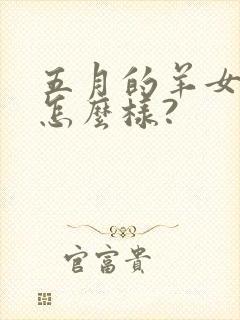 五月的羊女
怎麼樣?
官富貴